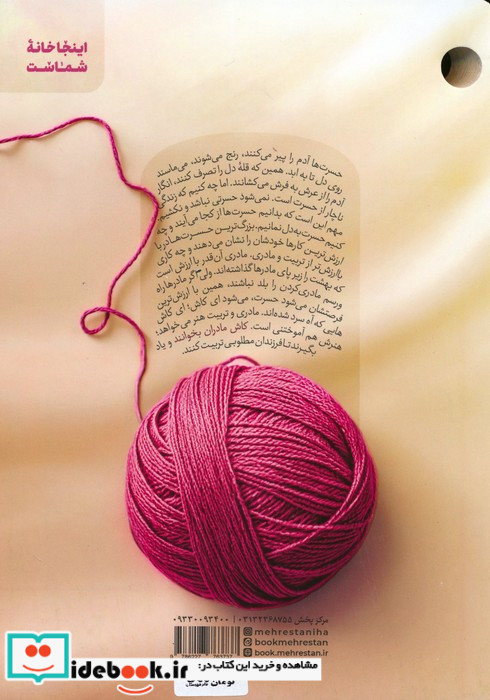 اینجا خانهٔ
شماست
حسرت‌ها آدم را پیر می‌کنند، رنج می‌شوند، می‌ماسند
روی دل تا به ابد. همین که قلهٔ دل را تصرف کنند، انگار
آدم را از عرش به فرش می‌کشانند. اما چه کنیم که زندگی
ناچار از حسرت است. نمی‌شود حسرتی نباشد و نکشیم.
مهم این است که بدانیم حسرت‌ها از کجا می‌آیند و چه
کنیم حسرت‌به‌دل نمانیم. بزرگ‌ترین حسرت‌ها، در با
ارزش‌ترین کارها خودشان را نشان می‌دهند و چه کاری
باارزش‌تر از تربیت و مادری. مادری آن‌قدر با ارزش است
که بهشت را زیر پای مادرها گذاشته‌اند. ولی اگر مادرها راه
و رسم مادری‌کردن را بلد نباشند، همین با ارزش‌ترین
فرصتشان می‌شود حسرت، می‌شود ای کاش؛ ای کاش
هایی که آه سرد شده‌اند. مادری و تربیت هنر می‌خواهد؛
هنرش هم آموختنی است. کاش مادران بخوانند و یاد
بگیرند تا فرزندان مطلوبی تربیت کنند.
مرکز پخش ۰۳۱۳۲۳۶۸۷۵۵ | ۰۹۳۳۰۰۹۳۴۰۰
mehrestaniha
bookmehrestan.ir
مشاهده و خرید این کتاب در:
idebook.ir
تومان